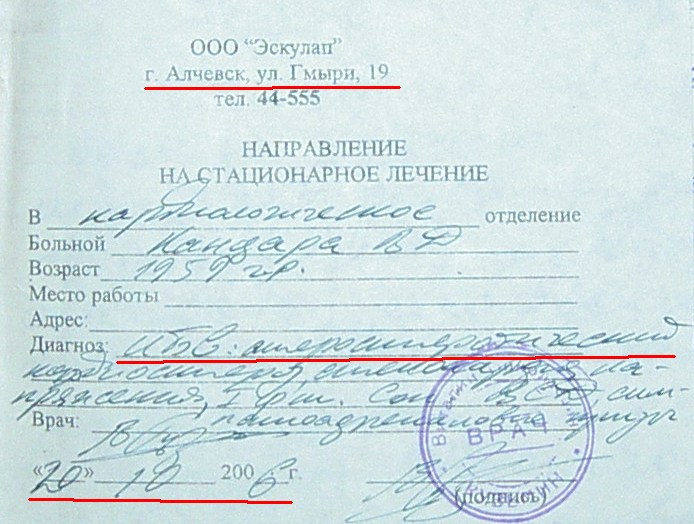 ООО “Эскулап”
г. Алчевск, ул. Гмыри, 19
тел. 44-555
НАПРАВЛЕНИЕ
НА СТАЦИОНАРНОЕ ЛЕЧЕНИЕ
В кардиологическое отделение
Больной Кандара В Д
Возраст 1959 г.р.
Место работы
Адрес:
Диагноз: ИБС: атеросклеротический
кардиосклероз, стенокардия на-
пряжения, I ф.к. ВСД, сим-
Врач: патоадреналовые кризы
ВРАЧ
«20» 10 2006 г.
(подпись)